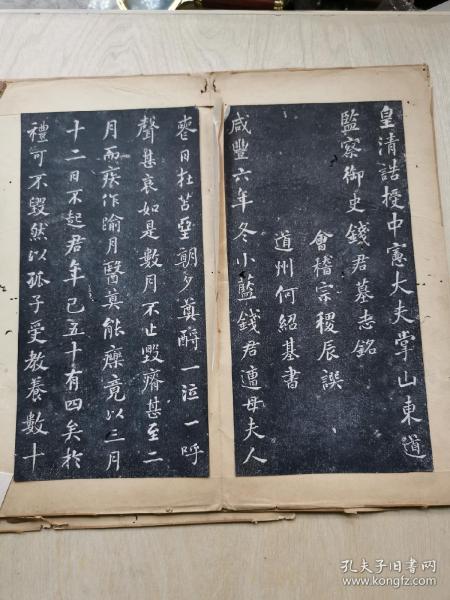 皇清誥授中憲大夫掌山東道
監察御史錢君墓志銘
會稽宗稷辰譔
道州何紹基書
咸豐六年冬小藍錢君遭母夫人
喪日在苫堊朝夕奠酹一泣一呼
聲甚哀如是數月不止毀瘠甚至二
月而疾作踰月醫莫能療竟以三月
十二日不起君年已五十有四矣於
禮可不毀然以孤子受教養數十
孔夫子旧书网
www.kongfz.com